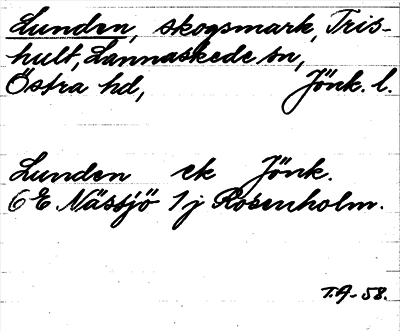 Lunden, skogsmark, Tris-
hult, Lannaskede sn,
Östra hd, Jönk. l.
Lunden ek Jönk.
6E Nässjö 1j Rosenholm.
T.A-58.